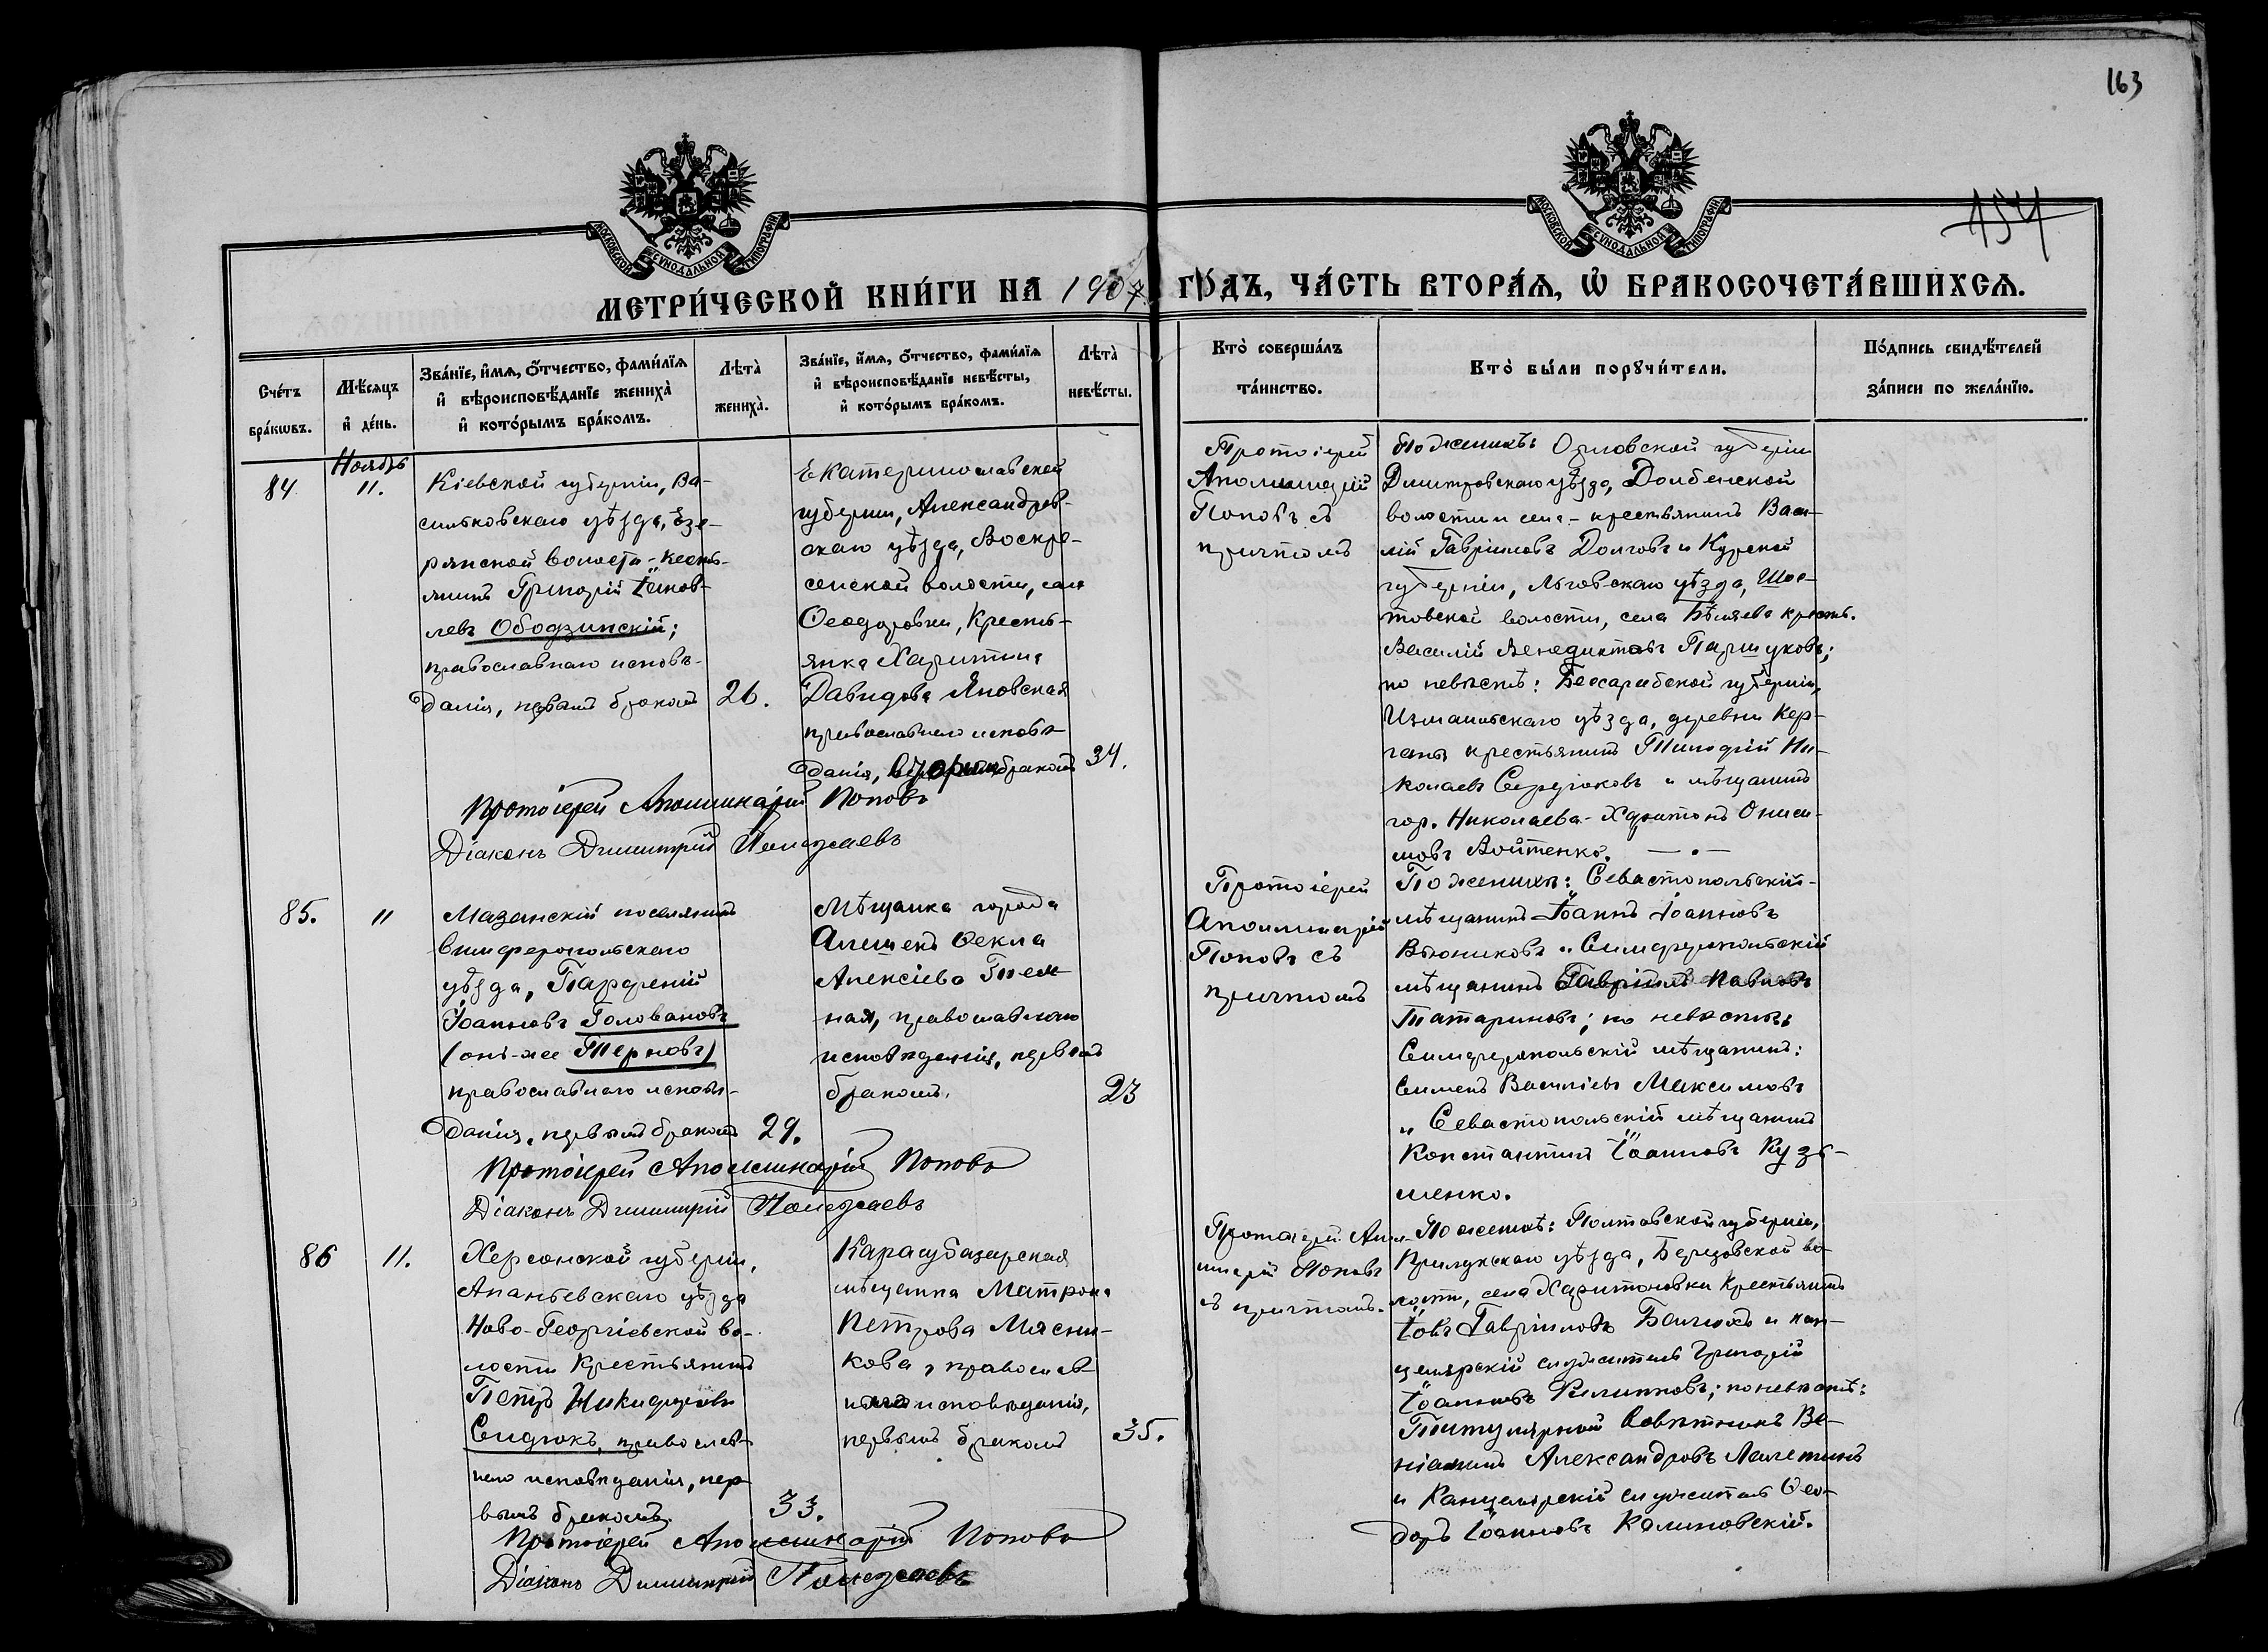 163
154
МОСКОВСКОЙ СѴНОДАЛЬНОЙ ТИПОГРАФІИ
МОСКОВСКОЙ СѴНОДАЛЬНОЙ ТИПОГРАФІИ
МЕТРИ́ЧЕСКОЙ КНИ́ГИ НА 1907 ГО́ДЪ, ЧА́СТЬ ВТОРА́Ѧ, Ѡ҆ БРАКОСОЧЕТА́ВШИХСѦ.
Сче́тъ бра́кѡвъ.
Мѣ́сяцъ и҆ де́нь.
Зва́нїе, и҆́мѧ, ѻ҆́тчество, фами́лїѧ
и҆ вѣроисповѣ́данїе жениха̀
и҆ кото́рымъ бра́комъ.
Лѣ́та̀ жениха̀.
Зва́нїе, и҆́мѧ, ѻ҆́тчество, фами́лїѧ
и҆ вѣроисповѣ́данїе невѣ́сты,
и҆ кото́рымъ бра́комъ.
Лѣ́та̀ невѣ́сты.
Кто̀ соверша́лъ
та́инство.
Кто̀ бы́ли порꙋчи́тели.
По́дпись свидѣ́телей
за́писи по жела́нїю.
84
Ноябрь
11.
Кіевской губерніи, Ва-
сильковскаго уѣзда, Езе-
рянской волости - кресть-
янинъ Григорій Іаков-
левъ Ободзинскій;
православнаго исповѣ-
данія, первымъ бракомъ
26.
Екатеринославской
губерніи, Александров-
скаго уѣзда, Воскре-
сенской волости, села
Ѳеодоровки, Кресть-
янка Харитина
Давидова Яновская
православнаго исповѣ-
данія, вторымъ бракомъ
34.
Протоіерей Аполлинарій Поповъ
Діаконъ Димитрій
Протоіерей
Аполлинарій
Поповъ съ
причтомъ
По женихѣ: Орловской губерніи
Дмитровскаго уѣзда, Долбенской
волости и села - крестьянинъ Васи-
лій Гавріиловъ Долговъ и Курской
губерніи, Льговскаго уѣзда,
товской волости, села Бѣляева крестьян.
Василій Венедиктовъ Паршуковъ;
по невѣстѣ: Бессарабской губерніи,
Измаильскаго уѣзда, деревни Кер-
ганы крестьянинъ Тимофій Ни-
колаевъ Сердюковъ и мѣщанинъ
гор. Николаева - ХаритонъОниси-
мовъ Войтенко.
85.
11
Мазанскій поселянинъ
Симферопольскаго
уѣзда, Парфеній
Іоанновъ Головановъ
(онъ-же Терновъ)
православнаго исповѣ-
данія, первымъ бракомъ
29.
Мѣщанка города
Алешекъ Ѳекла
Алексіева Тем-
ная, православнаго
исповѣданія, первымъ
бракомъ.
23
Протоіерей Аполлинарій Поповъ
Діаконъ Димитрій
Протоіерей
Аполлинарій
Поповъ съ
причтомъ
По женихѣ: Севастопольскій
мѣщанинъ Іоаннъ Іоанновъ
Вьюниковъ и Симферопольскій
мѣщанинъ Гавріилъ Павловъ
Татариновъ; по невѣстѣ:
Симферопольскій мѣщанинъ:
Симеонъ Васильевъ Максимовъ
и Севастопольскій мѣщанинъ
Константинъ Іоанновъ Кузь-
менко.
86
11.
Херсонской губерніи,
Ананьевскаго уѣзда
Ново-Георгіевской во-
лости Крестьянинъ
Петръ Никифоровъ
Сидюкъ, православ-
наго исповѣданія, пер-
вымъ бракомъ.
33.
Карасубазарская
мѣщанка Матрона
Петрова Мясни-
кова, православ-
наго исповѣданія,
первымъ бракомъ
35.
Протоіерей Аполлинарій Поповъ
Діаконъ Димитрій
Протоіерей Апол-
линарій Поповъ
съ причтомъ.
По женихѣ: Полтавской губерніи,
Прилукскаго уѣзда, Березовской во-
лости, села Харитоновки Крестьянинъ
Іовъ Гавріиловъ и кан-
целярскій служитель Григорій
Іоанновъ Филипповъ; по невѣстѣ:
Титулярный Совѣтникъ Ве-
ніаминъ Александровъ
и Канцелярскій служитель Ѳео-
доръ Іоанновъ Калиновскій.